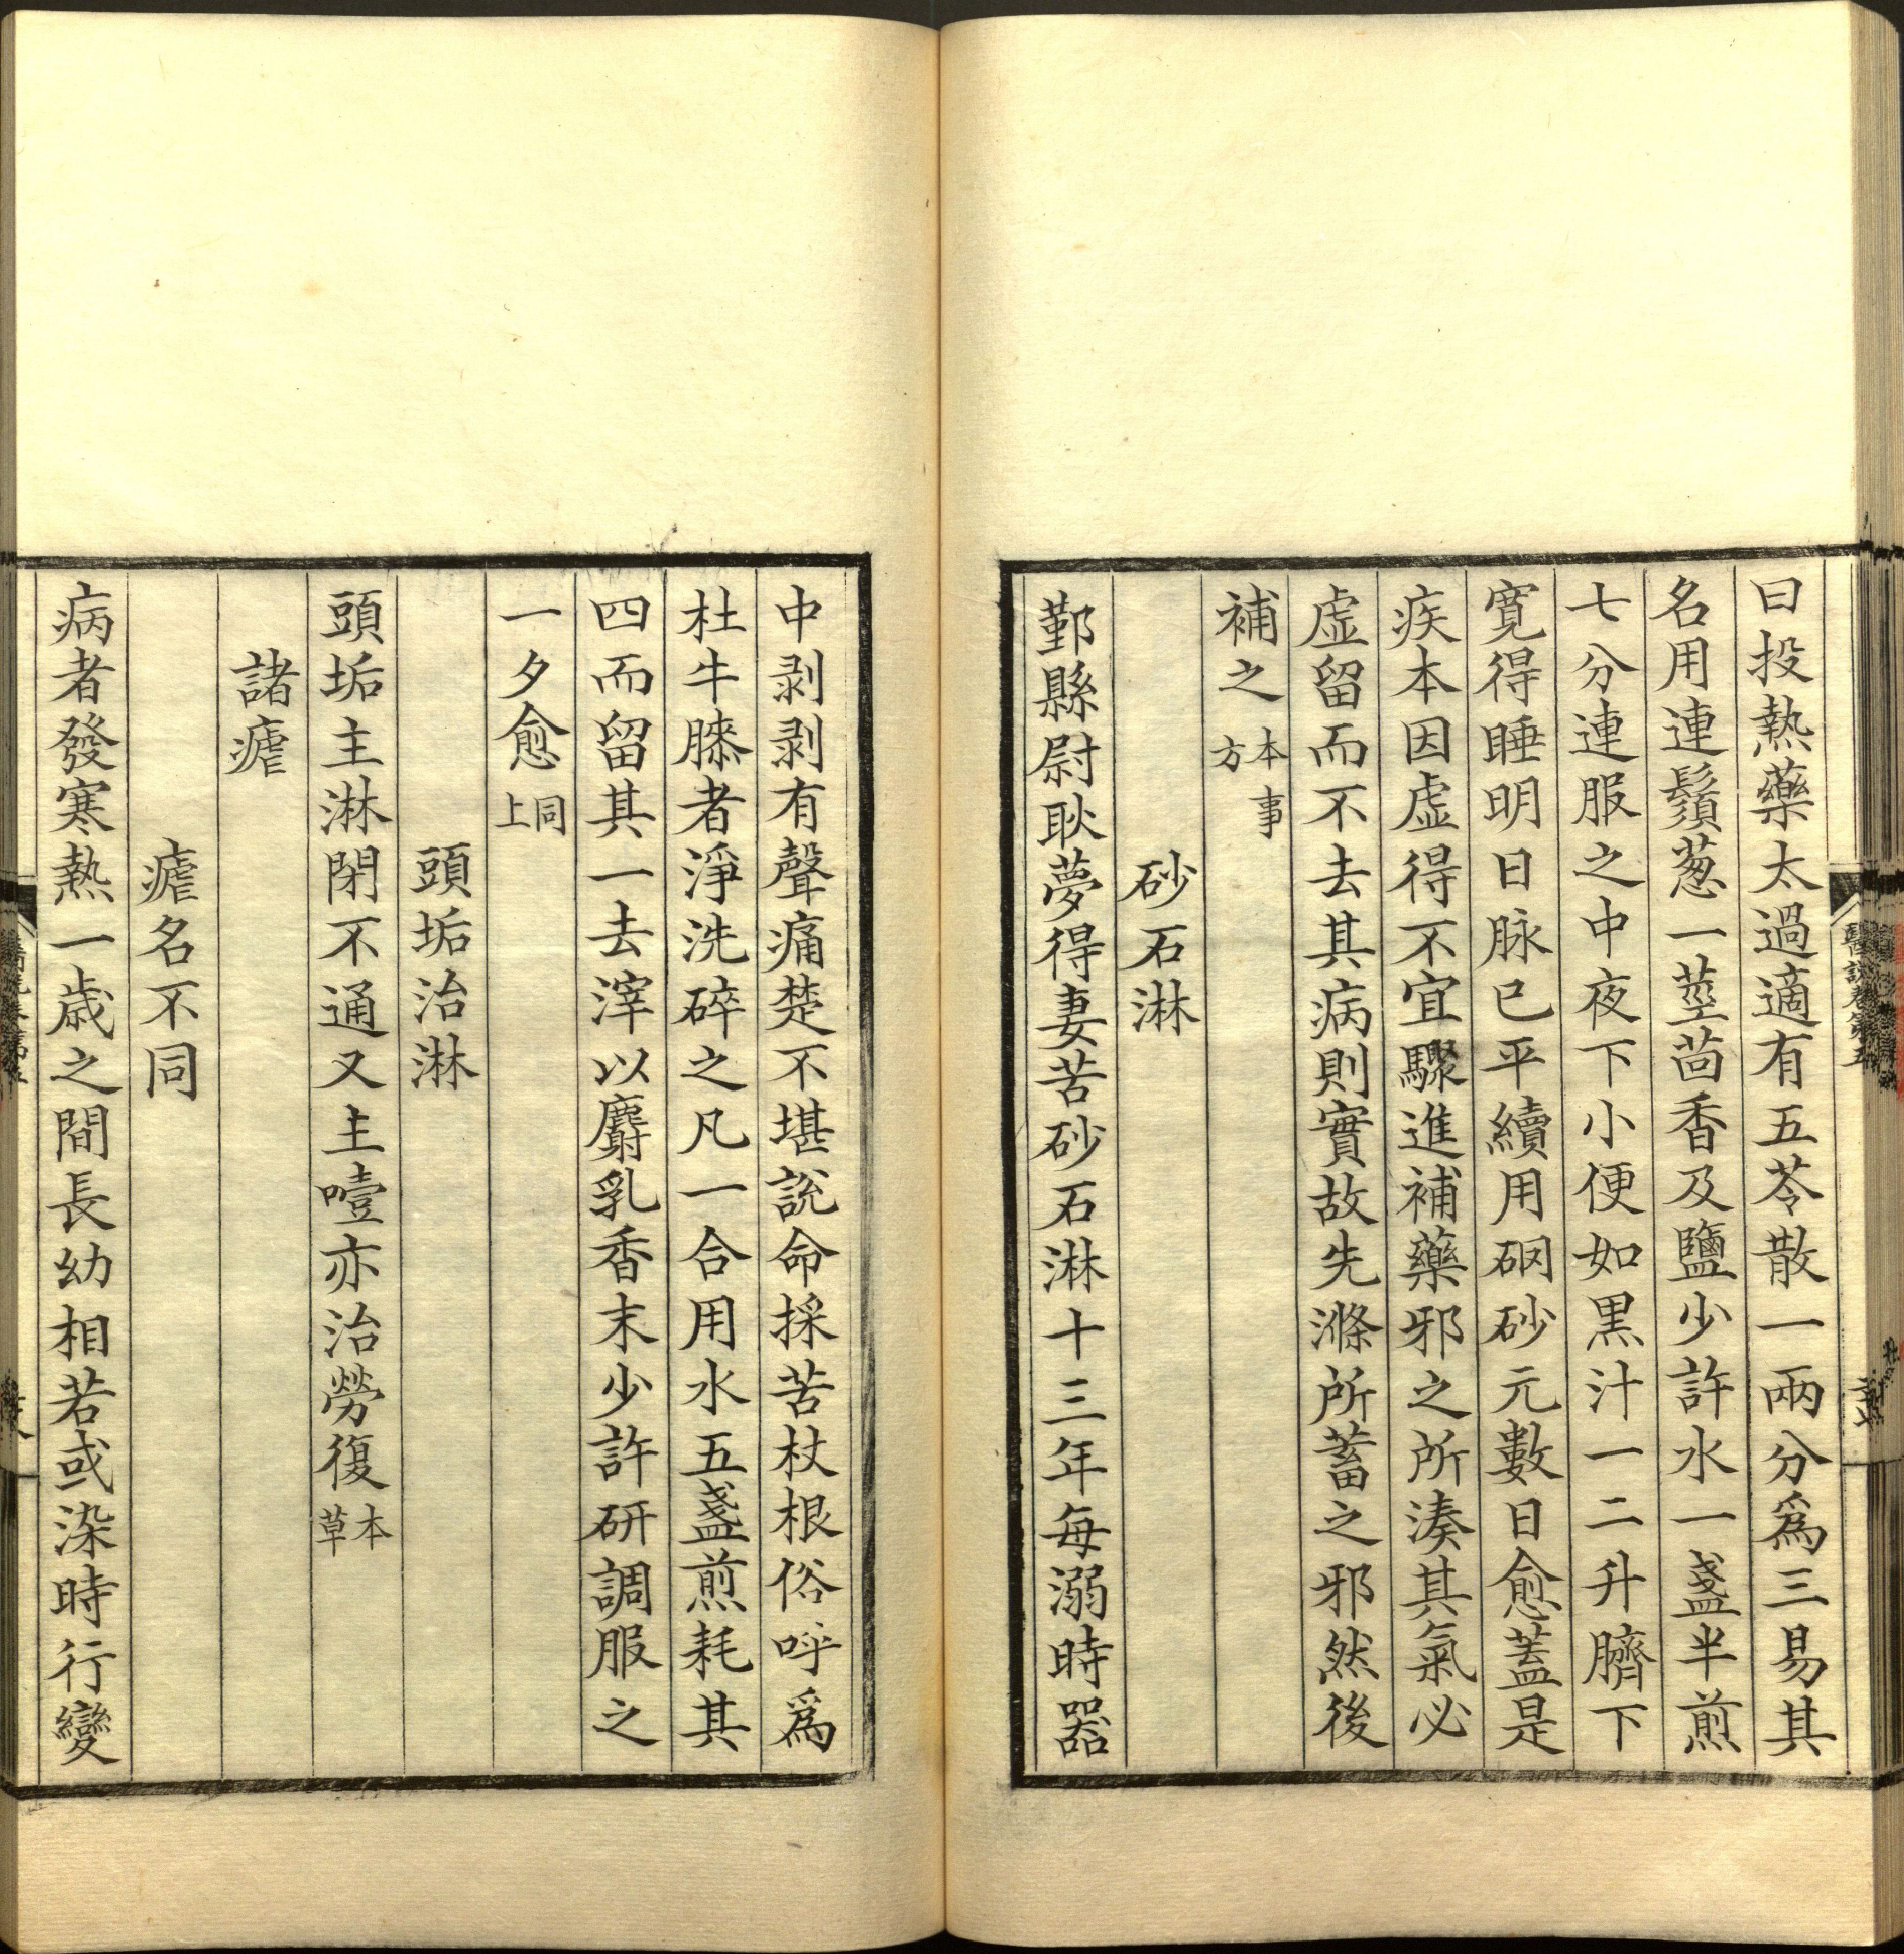 曰投熱藥太過適有五苓散一兩分爲三易其
名用連鬚葱一莖茴香及鹽少許水一盞半煎
七分連服之中夜下小便如黒汁一二升臍下
寛得睡明日脉已平續用硇砂元數日愈蓋是
疾本因虚得不宜驟進補藥邪之所湊其氣必
虚留而不去其病則實故先滌所蓄之邪然後
補之本事方
砂石淋
鄞縣尉耿夢得妻苦砂石淋十三年每溺時器
中剥剥有聲痛楚不堪說命採苦杖根俗呼爲
杜牛膝者淨洗碎之凡一合用水五盞煎耗其
四而留其一去滓以麝乳香末少許研調服之
一夕愈同上
頭垢治淋
頭垢主淋閉不通又主噎亦治勞復本草
諸瘧
瘧名不同
病者發寒熱一歳之間長幼相若或染時行變